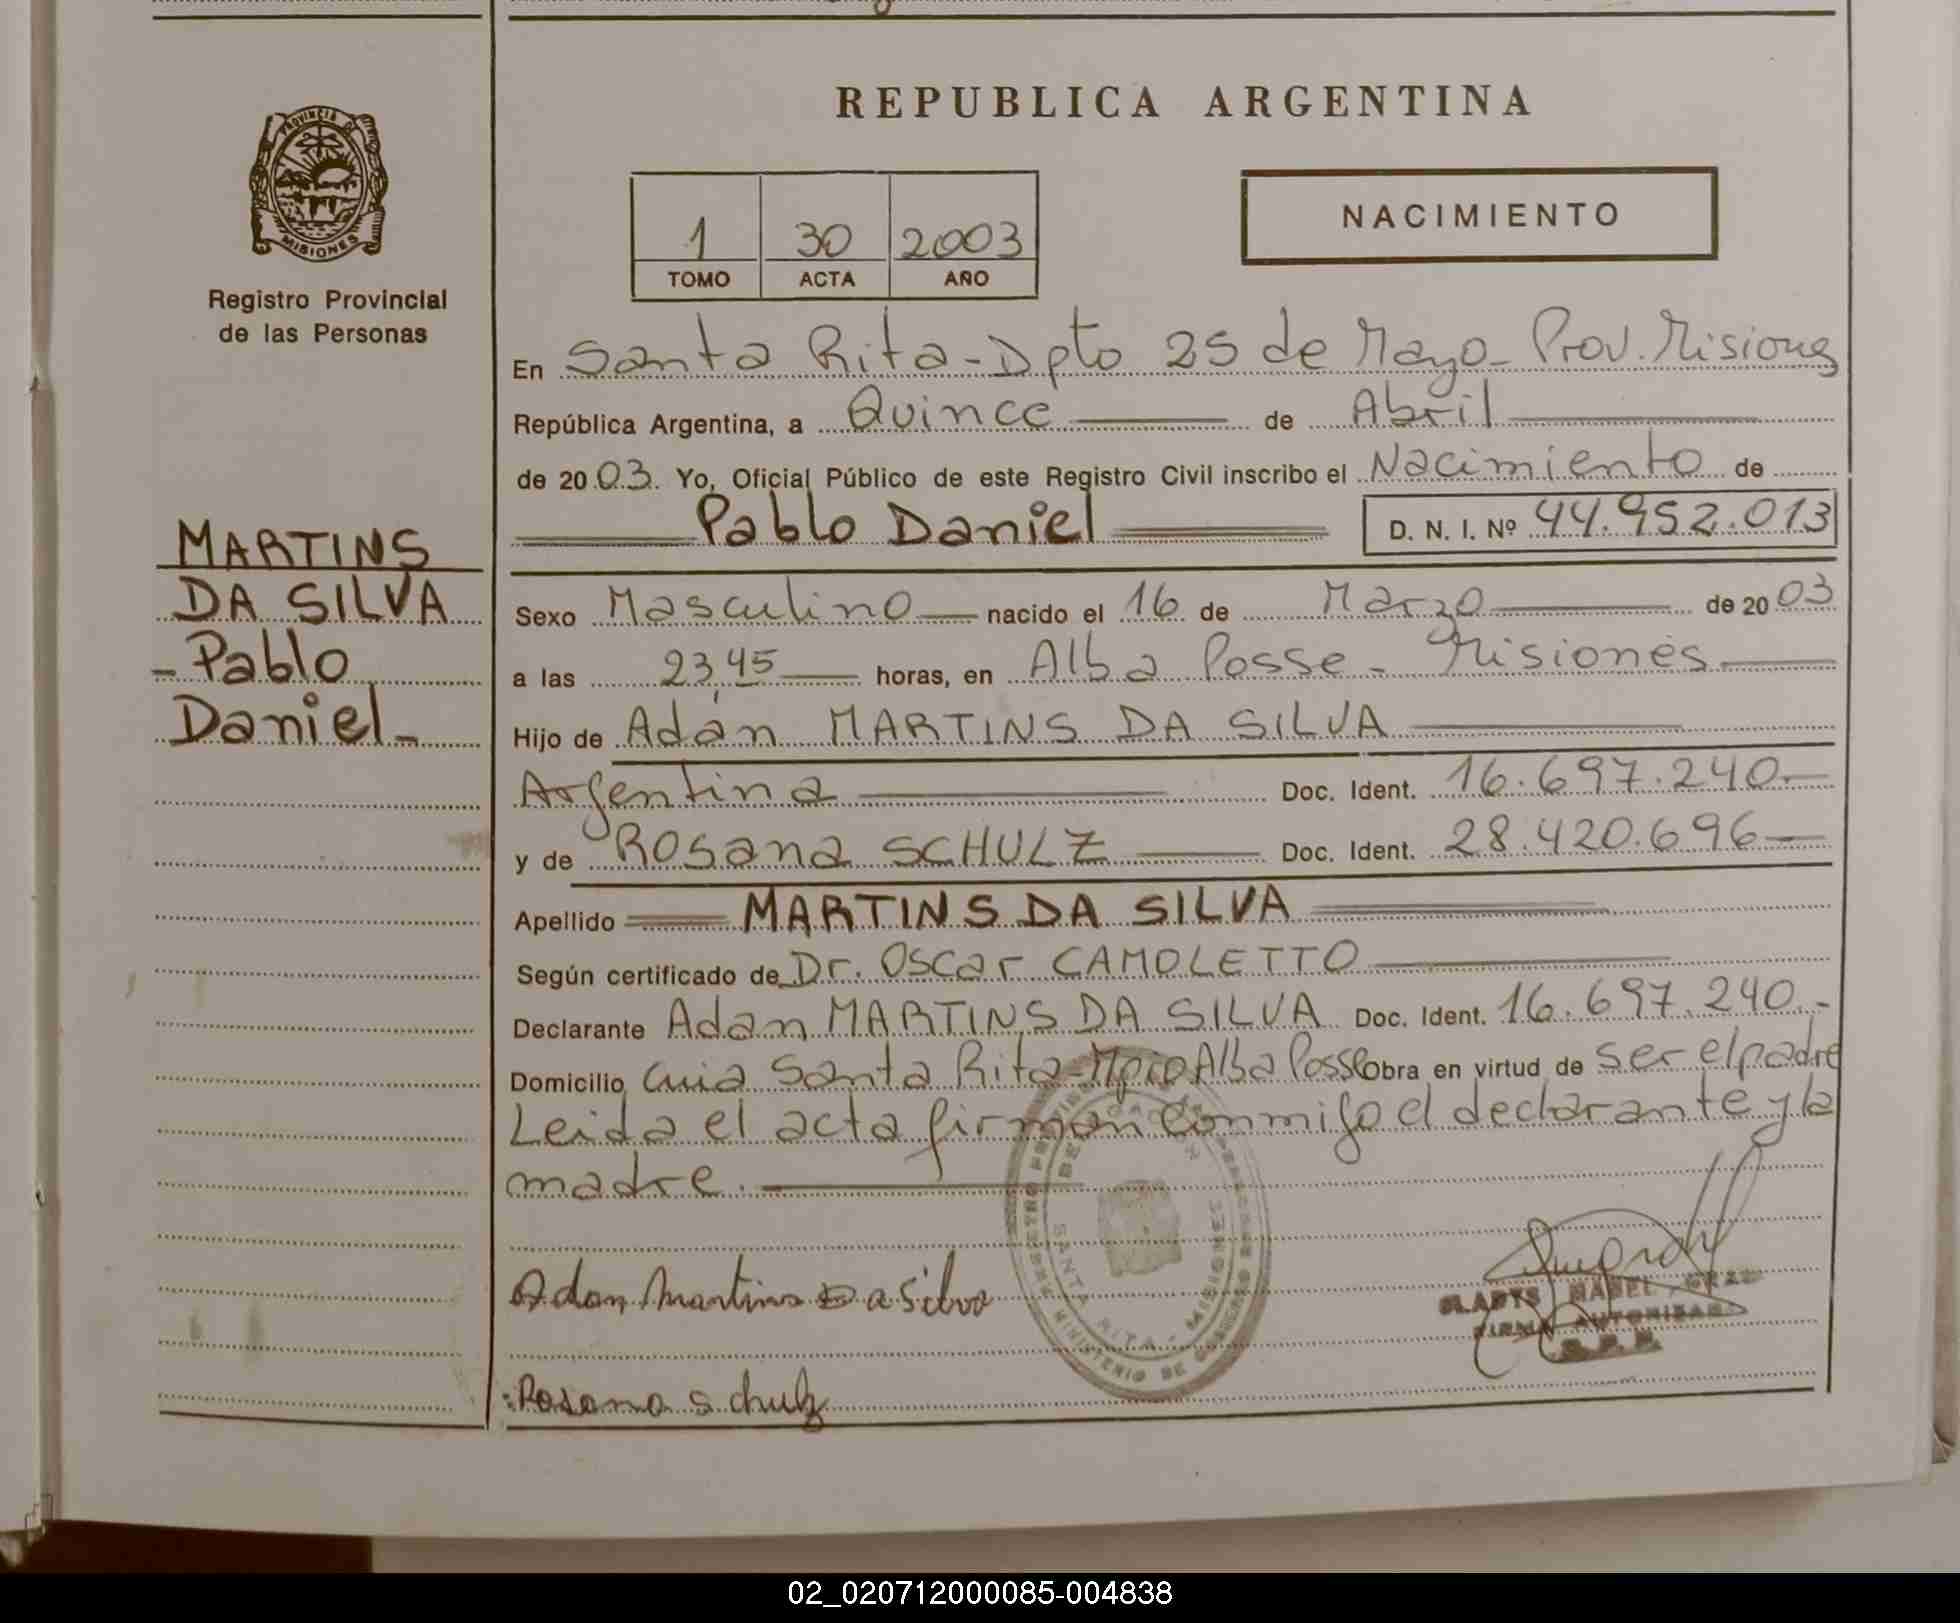 REPUBLICA ARGENTINA
PROVINCIA DE MISIONES
Registro Provincial
de las Personas
MARTINS
DA SILVA
- Pablo
Daniel -
1 30 2003
TOMO ACTA AÑO
NACIMIENTO
En Santa Rita - Dpto 25 de Mayo - Prov. Misiones
República Argentina, a Quince de Abril
de 2003. Yo, Oficial Público de este Registro Civil inscribo el Nacimiento de
Pablo Daniel D. N. I. Nº 44.952.013
Sexo Masculino nacido el 16 de Marzo de 2003
a las 23,45 horas, en Alba Posse - Misiones
Hijo de Adán MARTINS DA SILVA
Argentina Doc. Ident. 16.697.240.-
y de Rosana SCHULZ Doc. Ident. 28.420.696
Apellido MARTINS DA SILVA
Según certificado de Dr. Oscar CAMOLETTO
Declarante Adan MARTINS DA SILVA Doc. Ident. 16.697.240.-
Domicilio Santa Rita - Mpio Alba Posse Obra en virtud de ser el padre
Leida el acta firman conmigo el declarante y la
madre.
Adan Martins Da Silva
GLADYS MABEL
FIRMA AUTORIZADA
R. P. P.
Rosana Schulz
SANTA RITA - MISIONES
MINISTERIO DE GOBIERNO
02_020712000085-004838